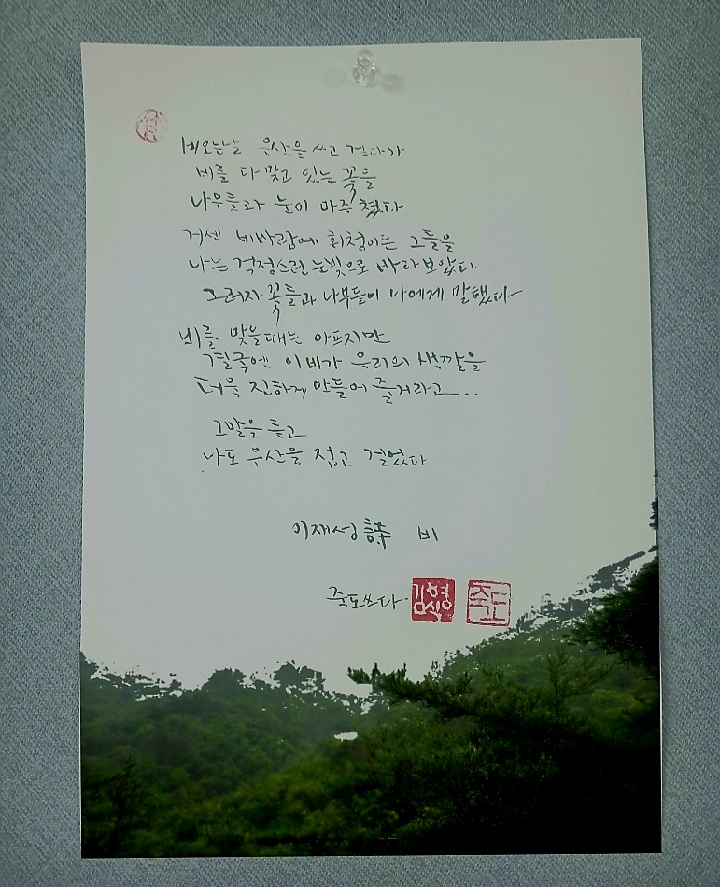 비오는날 우산을 쓰고 걷다가
비를 다 맞고 있는 꽃들
나무들과 눈이 마주쳤다
거센 비바람에 휘청이는 그들을
나는 걱정스런 눈빛으로 바라보았다.
그러자 꽃들과 나무들이 나에게 말했다
비를 맞을때는 아프지만
결국엔 이비가 우리의 색깔을
더욱 진하게 만들어 줄거라고...
그말을 듣고
나도 우산을 접고 걸었다
이재성 詩 비
죽도쓰다 김형식 죽도